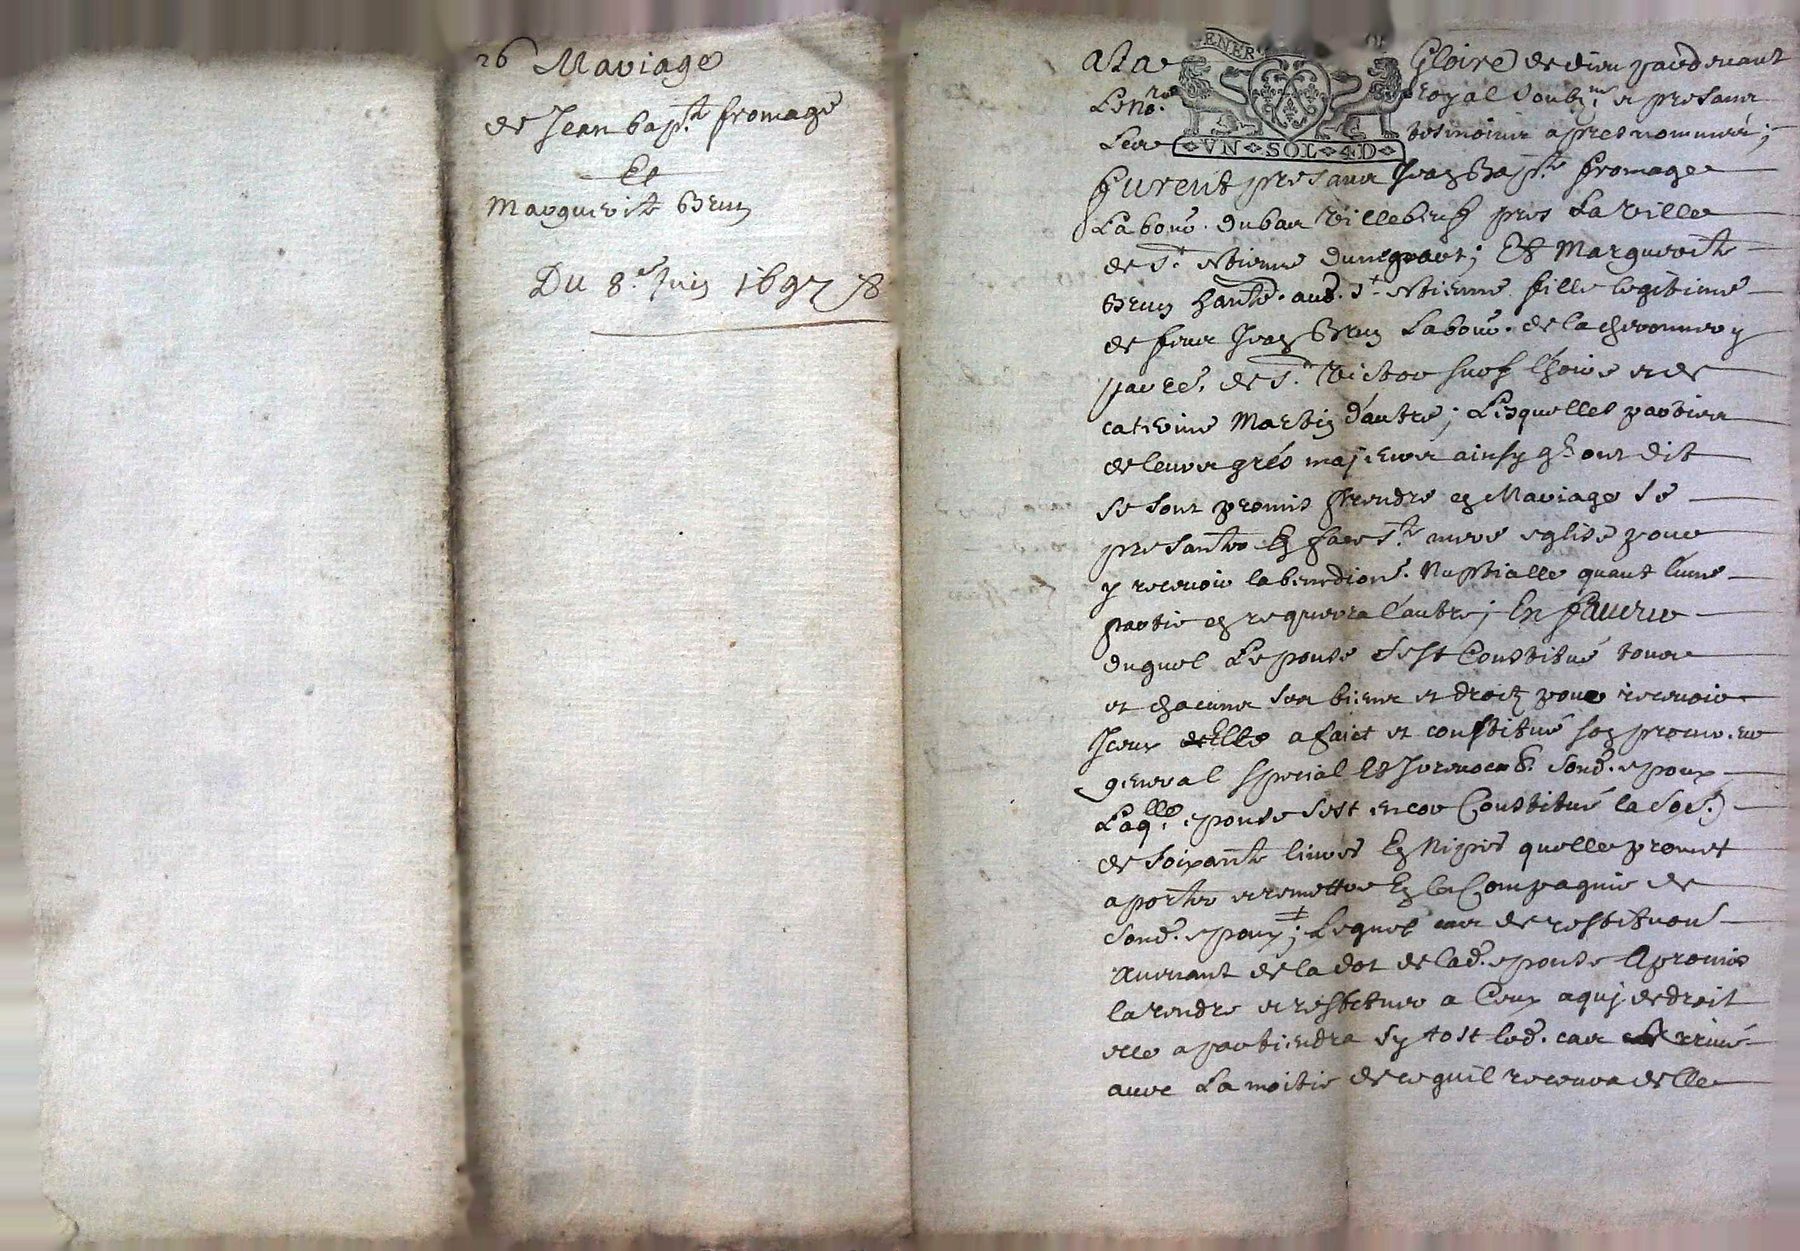 26 Mariage
de Jean bap.te fromage
Et
Marguerite Brun
Du 8.e Juin 1697
GENER
VN SOL 4D
A La Gloire de dieu pardevant
Le no.re Royal soubz.né et presans
Les tesmoins apres nommés;
furent presans Jean Bap.te fromage
Labour. du bas villebeuf pres La ville
de S.t Etienne d'une part; Et Marguerite
Brun hante. aud. S.t Etienne fille legitime
de feu Jean Brun Labour. de la
parre. de S.t Victor sur Loire et de
caterine Martin d'autre; Lesquelles parties
de leurs grés majeurs ainsy q.l ont dit
se sont promis prendre en Mariage se
presanter En face S.te mere eglise pour
y recevoir la benedion. Nuptialle quant lune
partie en requerra l'autre; En faveur
duquel Leponse s'est Constitué tous
et chacuns ses biens et droitz pour recevoir
Iceux Elle a faict et constitué son procur.eur
general special Et Irevocab. sond. epoux
Laq.lle eponse sest encor Constitué la so.e
de soixante livres En Nipes quelle promet
aporter et remettre En la Compagnie de
sond. epoux; Lequel cas de restituon
avenant de la dot de lad. eponse A promis
la rendre et restituer a Ceux a quj de droit
elle apartiendra sy tost led. cas arrivé
avec La moitie de ce quil recevra delle